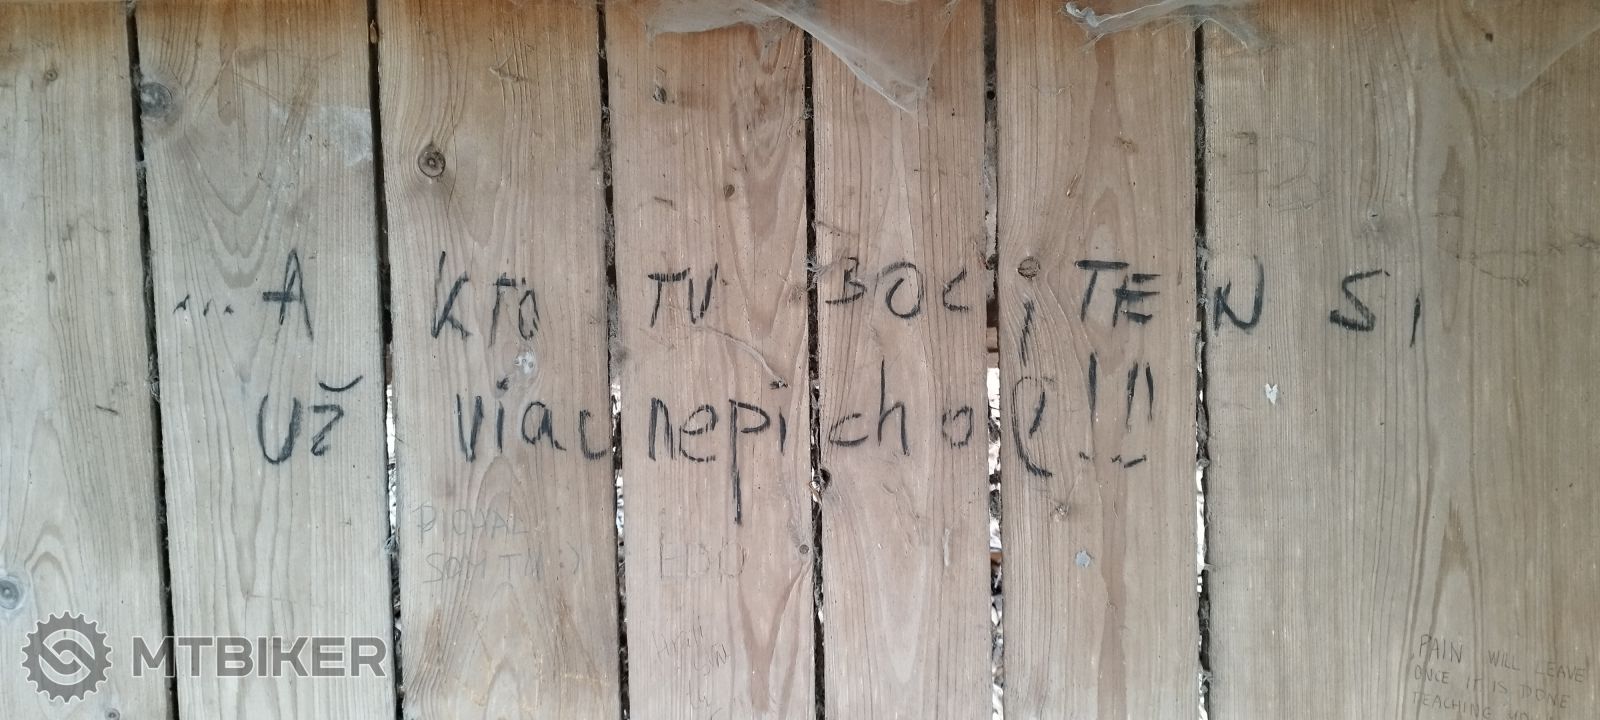 ...A KTO TU BOL; TEN SI,
UŽ viac nepichol!!!
PICHAL
SOM TU :)
EDO
PAIN WILL LEAVE
ONCE IT IS DONE
TEACHING
MTBIKER